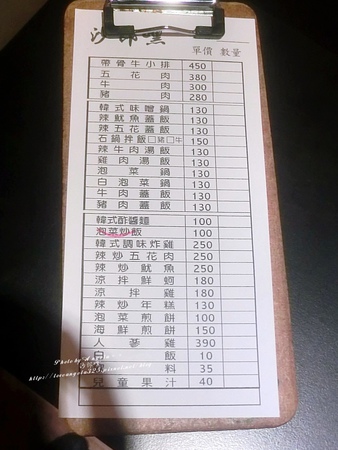 單價 數量
帶骨牛小排 450
五花肉 380
牛肉 300
豬肉 280
韓式味噌鍋 130
辣魷魚蓋飯 130
辣五花蓋飯 130
石鍋拌飯□豬□牛 150
辣牛肉湯飯 130
雞肉湯飯 130
泡菜鍋 130
白泡菜鍋 130
牛肉蓋飯 130
豬肉蓋飯 130
韓式酢醬麵 100
泡菜炒飯 100
韓式調味炸雞 250
辣炒五花肉 250
辣炒魷魚 250
涼拌鮮蚵 180
涼拌雞 180
辣炒年糕 130
泡菜煎餅 100
海鮮煎餅 150
人蔘雞 390
白飯 10
料 35
兒童果汁 40
Photo by